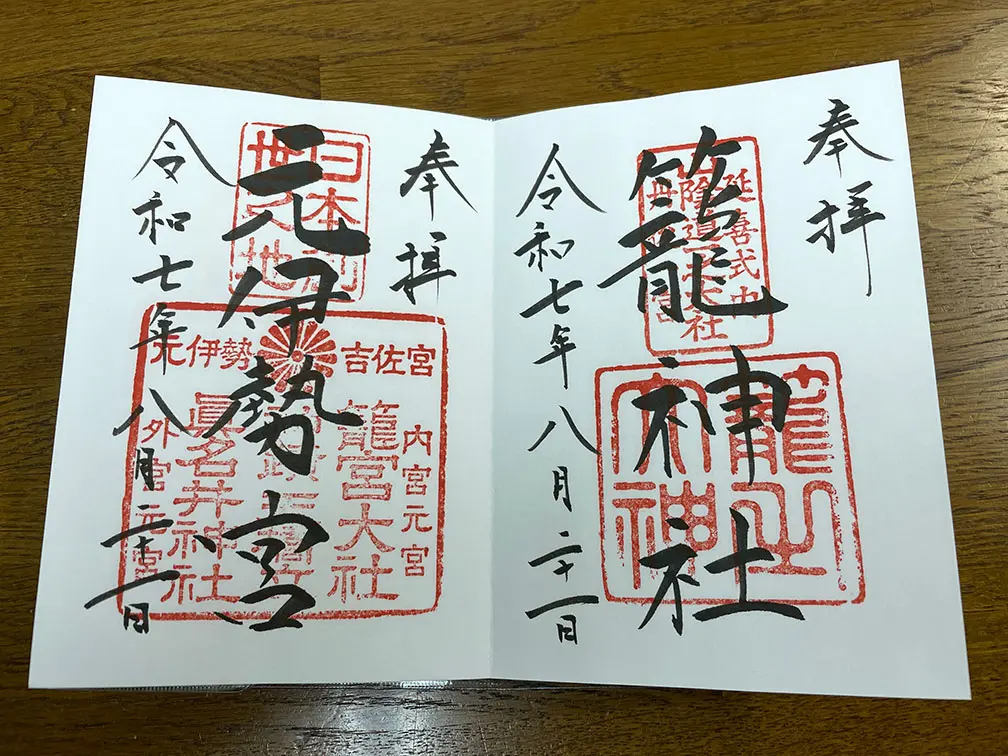 奉拝
延喜式中
山陰道
大社
籠神社
籠之大神
令和七年八月二十一日
奉拝
日本
元伊勢宮
元伊勢
吉佐宮
内宮元宮
籠宮大社
眞名井神社
外宮元宮
令和七年八月二十一日